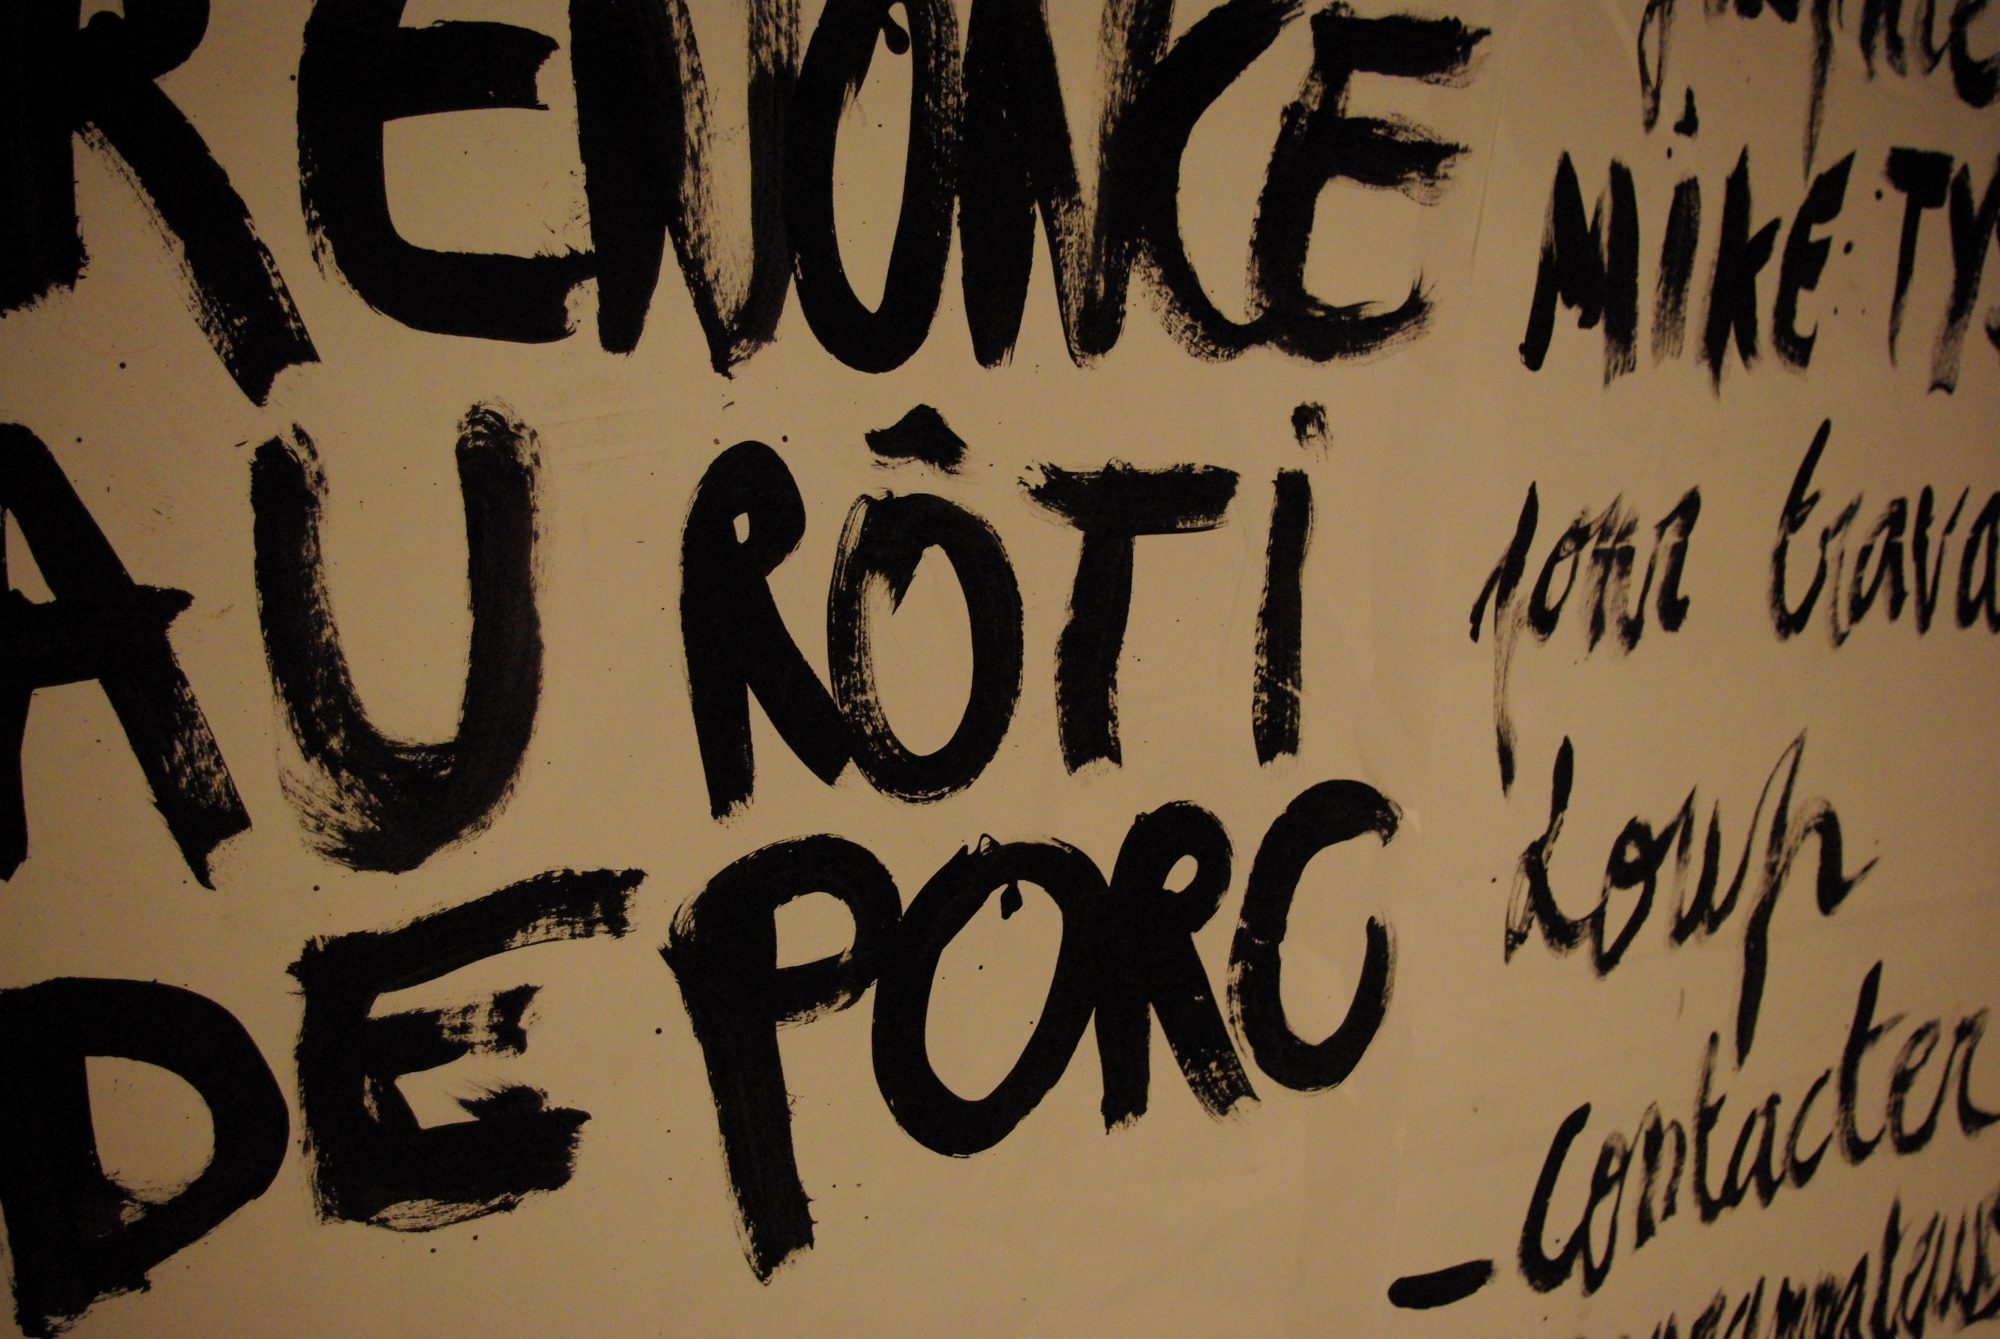 RENONCE
AU RÔTI
DE PORC
MIKE TYS
pour trava
Loup
- Contacter